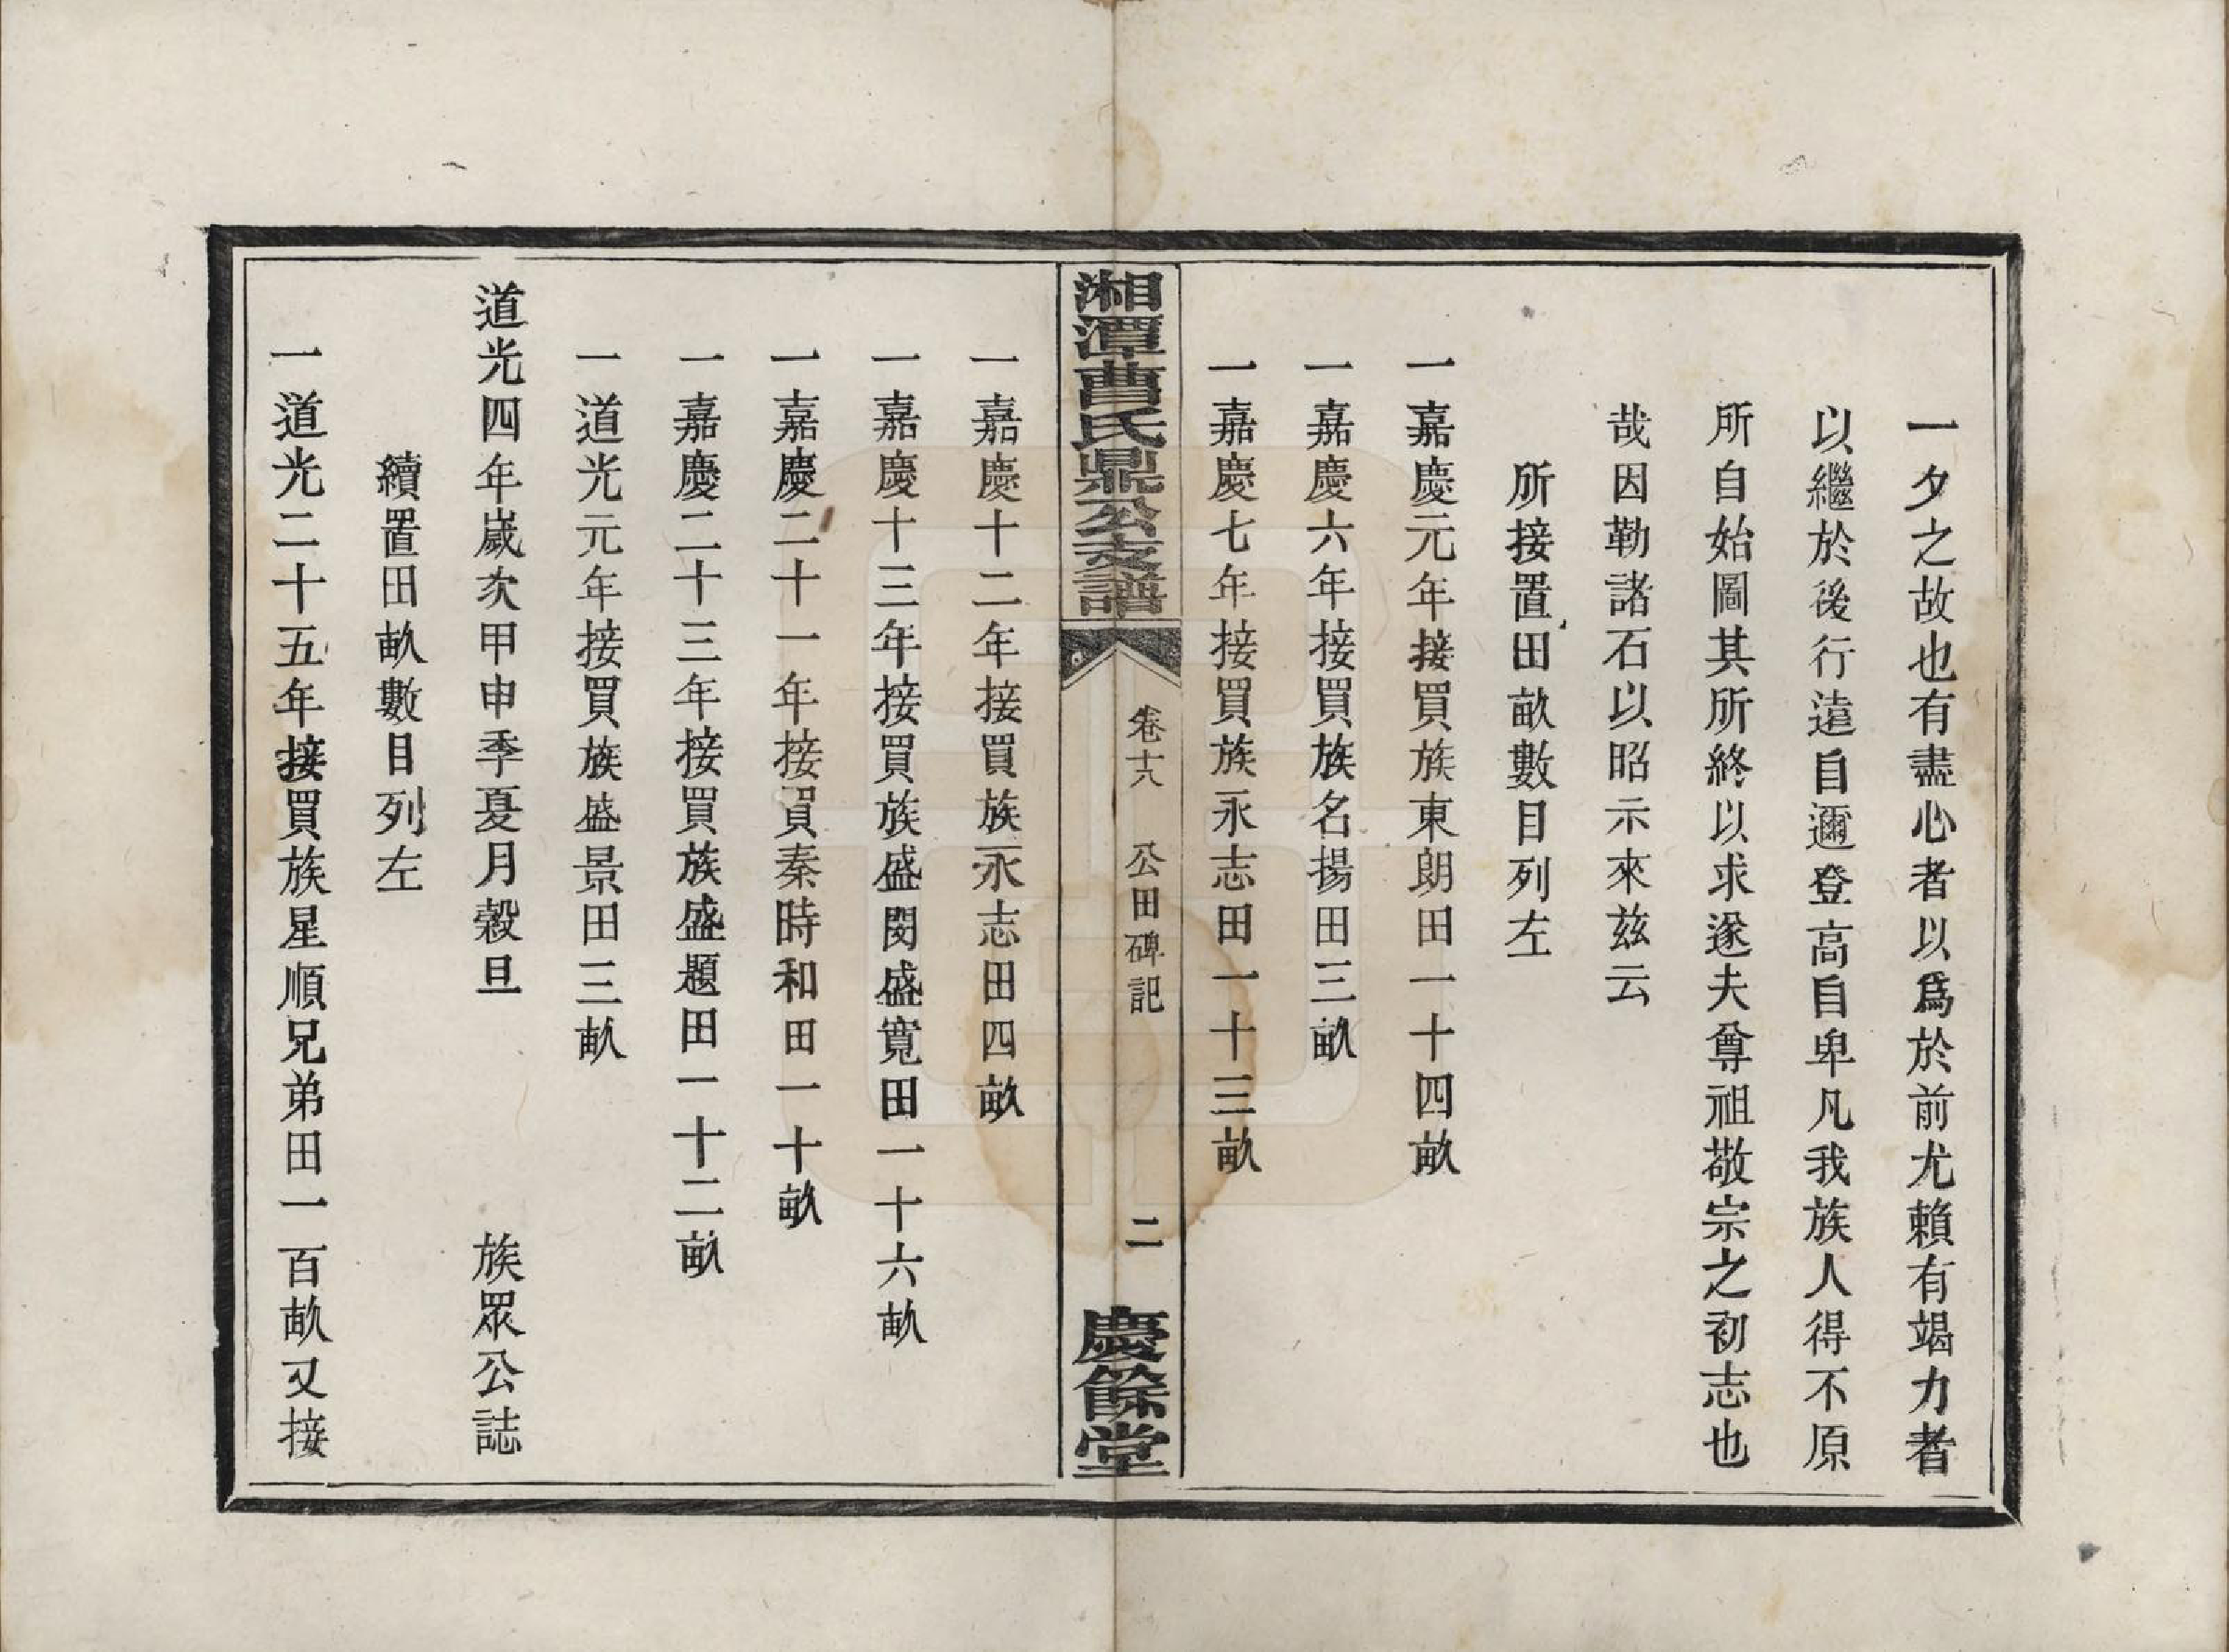 一夕之故也有盡心者以爲於前尤賴有竭力者
以繼於後行遠自邇登高自卑凡我族人得不原
所自始圖其所終以求遂夫尊祖敬宗之初志也
哉因勒諸石以昭示來玆云
所接置田畝數目列左
一嘉慶元年接買族東朗田一十四畝
一嘉慶六年接買族名揚田三畝
一嘉慶七年接買族永志田一十三畝
湘潭曹氏鼎公支譜
卷十八
公田碑記
二
慶餘堂
一嘉慶十二年接買族永志田四畝
一嘉慶十三年接買族盛閔盛寬田一十六畝
一嘉慶二十一年接買秦時和田一十畝
一嘉慶二十三年接買族盛題田一十二畝
一道光元年接買族盛景田三畝
道光四年歲次甲申季夏月穀旦 族眾公誌
續置田畝數目列左
一道光二十五年接買族星順兄弟田一百畝又接